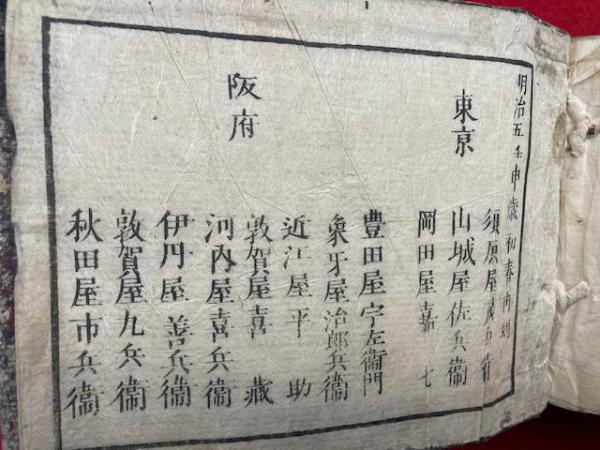 明治五壬申歳初春内刻
東京
須原屋茂兵衛
山城屋佐兵衛
岡田屋嘉七
阪府
豊田屋宇左衛門
象牙屋治郎兵衛
近江屋平助
敦賀屋喜藏
河内屋喜兵衛
伊丹屋善兵衛
敦賀屋九兵衛
秋田屋市兵衛